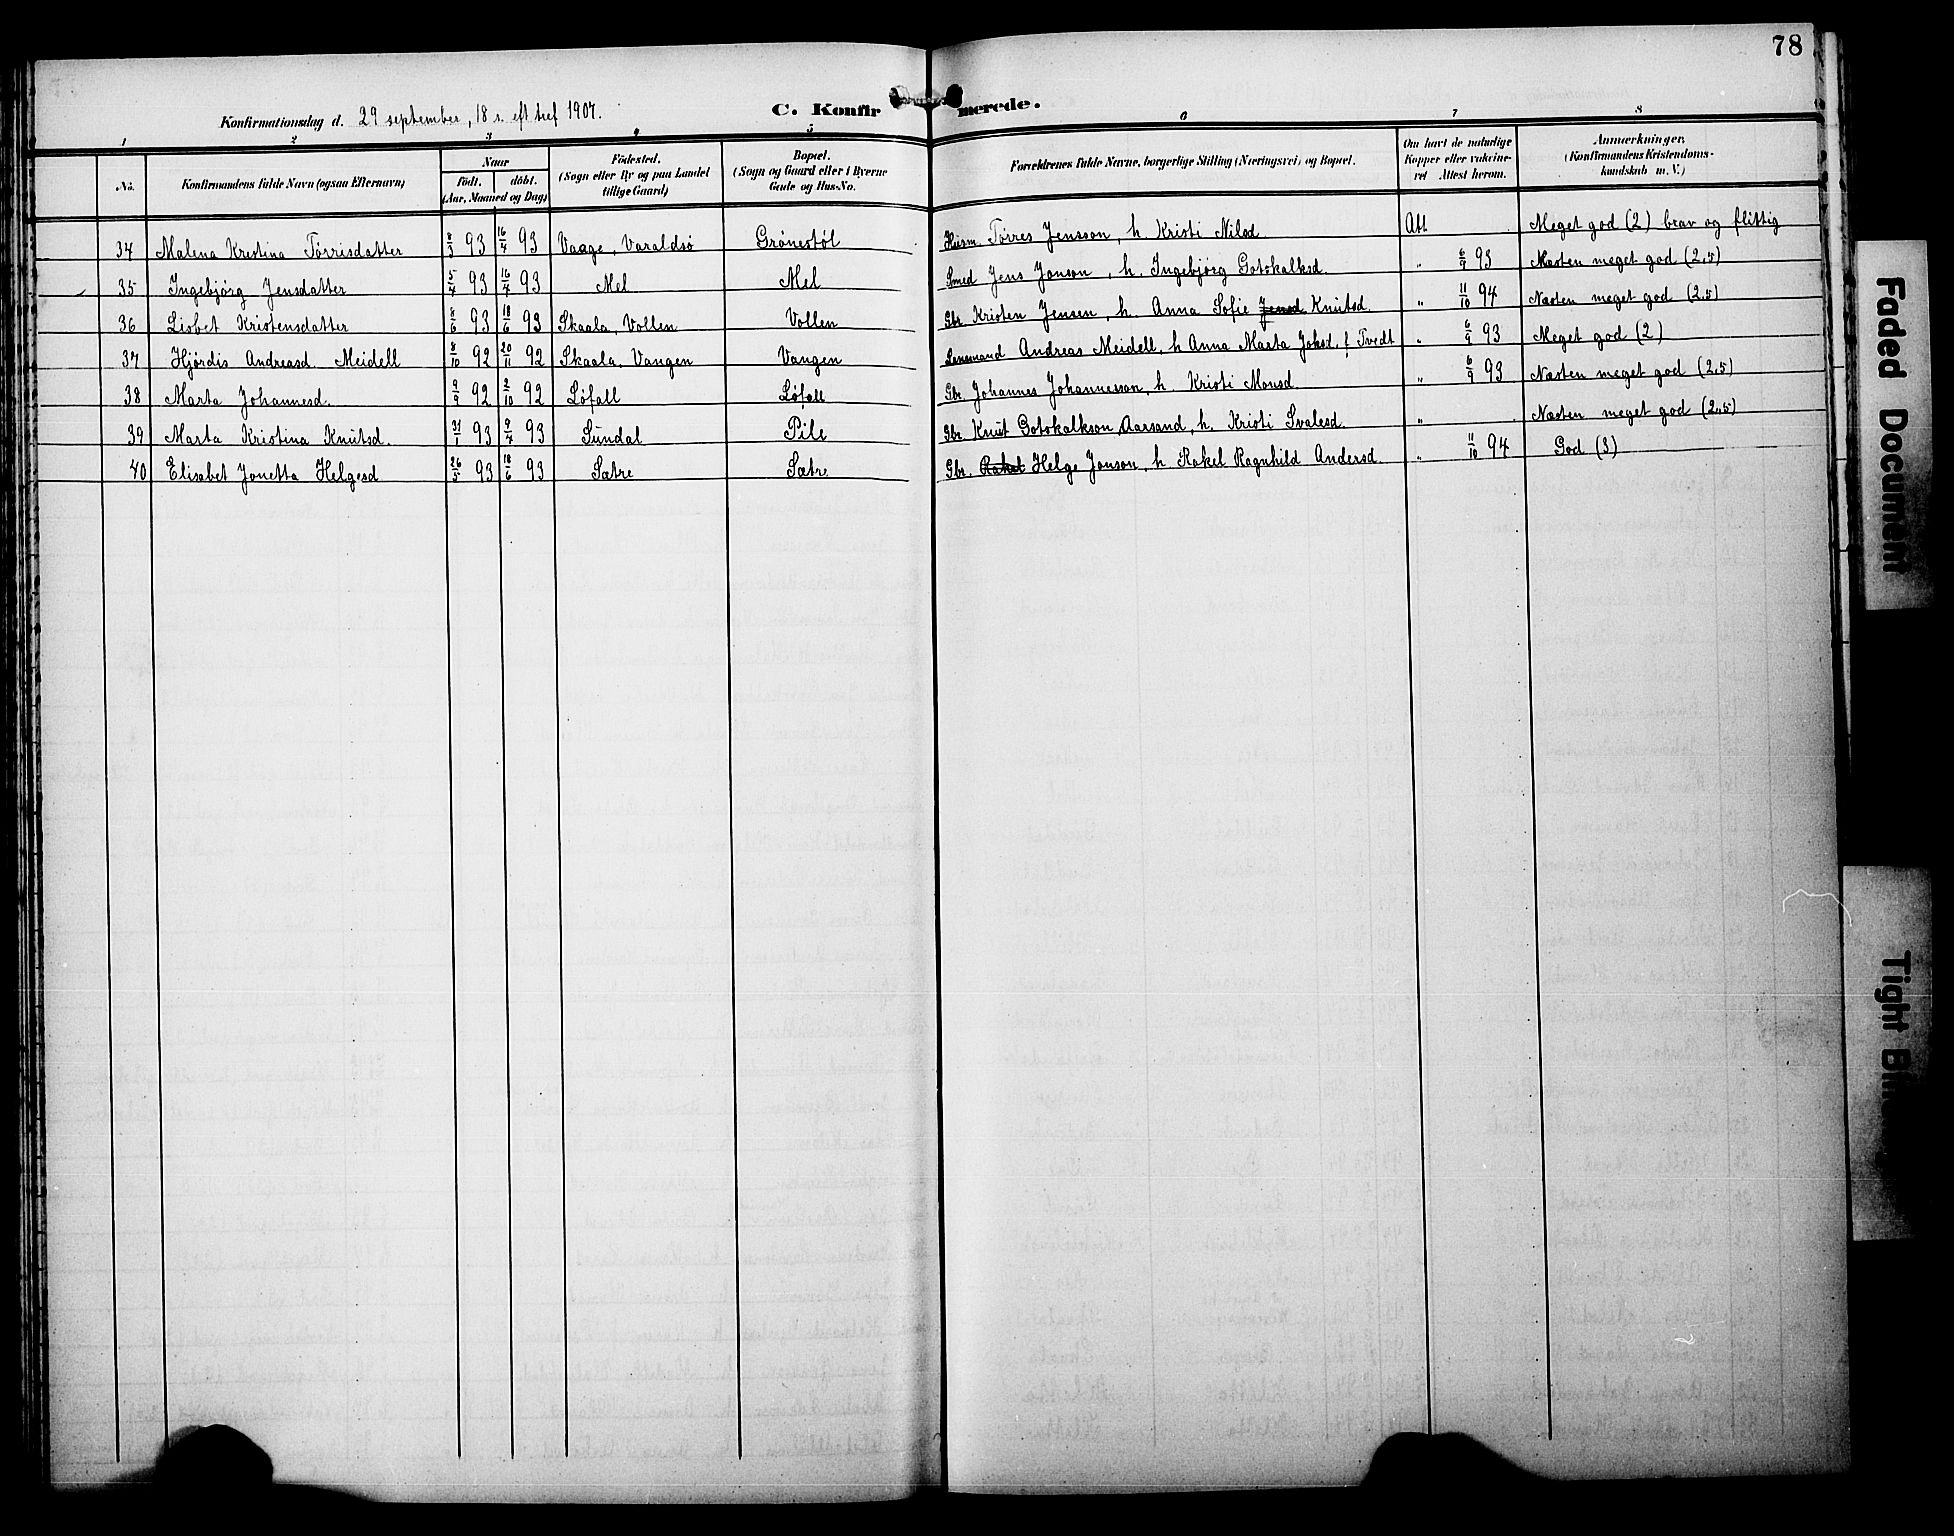 78
Konfirmationsdag d. 29 september, 18 s. eft tref 1907.
C. Konfirmerede.
1 2 3 4 5 6 7 8
No.
Konfirmandens fulde Navn (ogsaa Efternavn)
Naar
født. døbt.
(Aar, Maaned og Dag)
Fødested.
(Sogn eller By og paa Landet
tillige Gaard)
Bopæl.
(Sogn og Gaard eller i Byerne
Gade og Hus-No.
Forældrenes fulde Navne, borgerlige Stilling (Næringsvei) og Bopæl.
Om havt de naturlige
Kopper eller vakcine-
ret Attest herom.
Anmærkninger.
(Konfirmandens Kristendoms-
kundskab m. V.)
34 Malena Kristina Tørrisdatter 8/3 93 16/4 93 Vaage, Varaldsø Grønestøl Husm. Tørres Jensson, h. Kristi Nilsd. Att. Meget god (2) brav og flittig
35 Ingebjørg Jensdatter 5/4 93 16/4 93 Mel Mel Smed Jens Jonson, h. Ingebjørg Gotskalksd. " 6/9 93 Næsten meget god (2,5)
36 Lisbet Kristensdatter 8/6 93 18/6 93 Skaala, Vollen Vollen Gbr. Kristen Jensen, h. Anna Sofie Jensd Knutsd. " 11/10 94 Næsten meget god (2,5)
37 Hjørdis Andreasd. Meidell 8/10 92 20/11 92 Skaala, Vangen Vangen Lensmand Andreas Meidell, h Anna Marta Johsd. f Tvedt " 6/9 93 Meget god (2)
38 Marta Johannesd. 9/9 92 2/10 92 Løfall Løfall Gbr. Johannes Johannesson, h. Kristi Monsd. " 6/9 93 Næsten meget god (2,5)
39 Marta Kristina Knutsd. 31/1 93 9/4 93 Sundal Pile Gbr. Knut Gotskalkson Aarsand, h. Kristi Svalesd. " Næsten meget god (2,5)
40 Elisabet Jonetta Helgesd 26/5 93 18/6 93 Sætre Sætre Gbr. Rakel Helge Jonson, h Rakel Ragnhild Andersd. " 11/10 94 God (3)
Faded Document